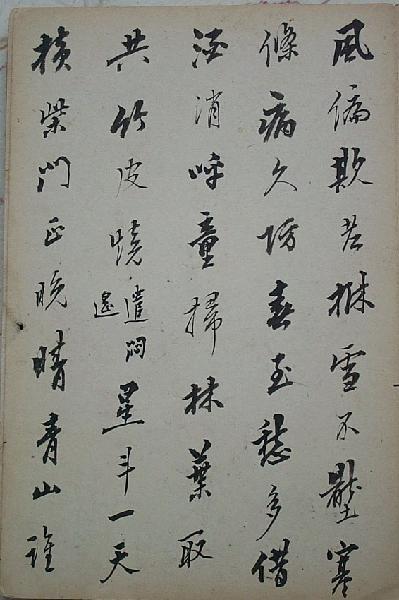 風偏欺雪不壓寒
條病久防春至愁多借
酒消呼童掃林葉取
共竹皮燒遣悶星斗一天
橫柴門正晚晴青山誰